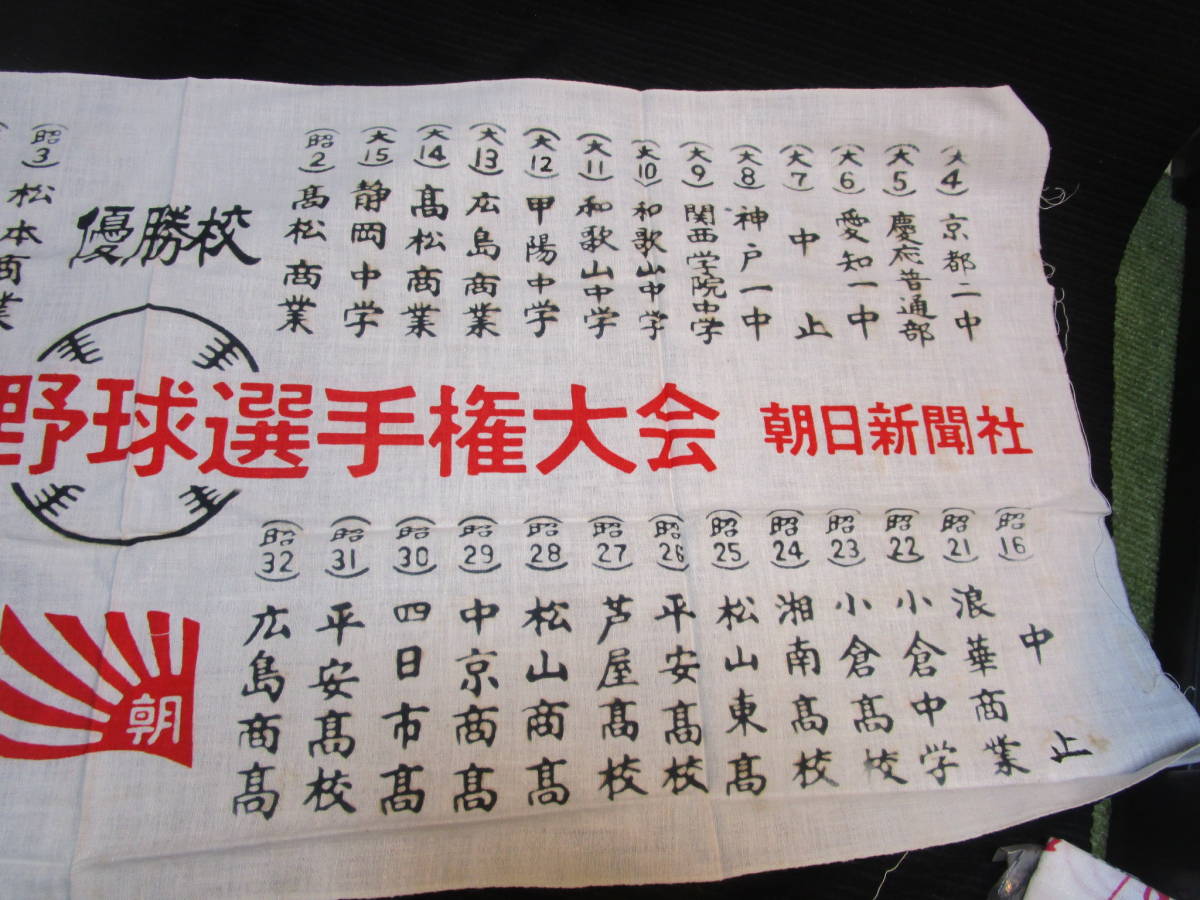 (大4) 京都二中
(大5) 慶応普通部
(大6) 愛知一中
(大7) 中止
(大8) 神戸一中
(大9) 関西学院中学
(大10) 和歌山中学
(大11) 和歌山中学
(大12) 甲陽中学
(大13) 広島商業
(大14) 髙松商業
(大15) 静岡中学
(昭2) 髙松商業
優勝校
(昭3) 松本商業
野球選手権大会 朝日新聞社
(昭16) 中止
(昭21) 浪華商業
(昭22) 小倉中学
(昭23) 小倉髙校
(昭24) 湘南髙校
(昭25) 松山東髙
(昭26) 平安髙校
(昭27) 芦屋髙校
(昭28) 松山商髙
(昭29) 中京商髙
(昭30) 四日市髙
(昭31) 平安髙校
(昭32) 広島商髙
朝